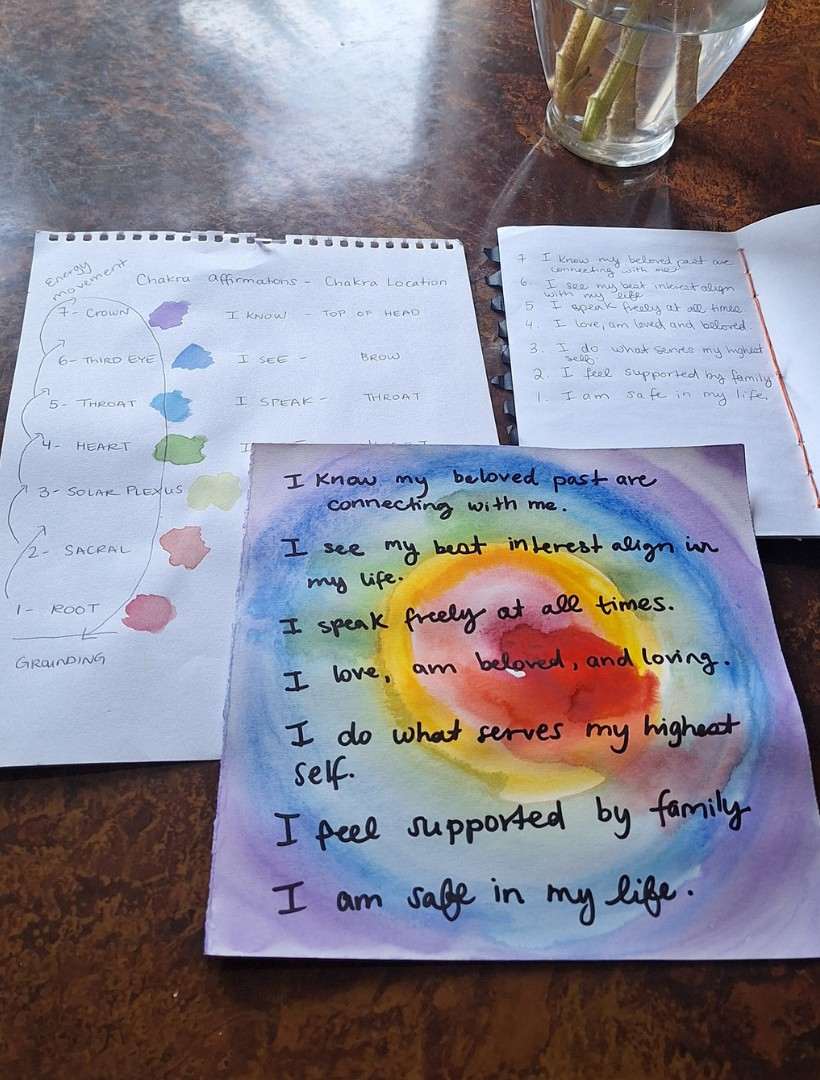 Energy
movement
Chakra affirmations - Chakra Location
7- CROWN I KNOW - TOP OF HEAD
6- THIRD EYE I SEE - BROW
5- THROAT I SPEAK - THROAT
4- HEART I
3- SOLAR PLEXUS
2- SACRAL
1- ROOT
GROUNDING
7 I know my beloved past are
connecting with me
6. I see my best interest align
with my life
5 I speak freely at all times
4. I love, am loved and beloved
3. I do what serves my highest
self.
2. I feel supported by family
1. I am safe in my life.
I know my beloved past are
connecting with me.
I see my best interest align in
my life.
I speak freely at all times.
I love, am beloved, and loving.
I do what serves my highest
self.
I feel supported by family
I am safe in my life.